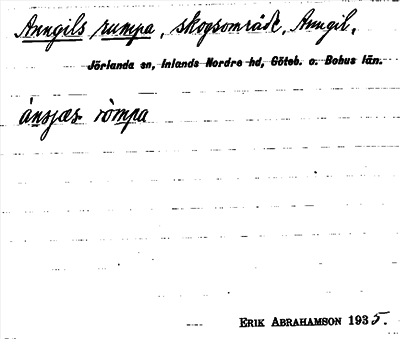 Anngils rumpa, skogsområde, Anngil,
Jörlanda sn, Inlands Nordre hd, Göteb. o. Bohus län.
ánsjæs ròmpa
ERIK ABRAHAMSON 1935.